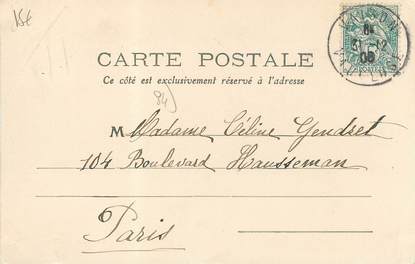 15€
CARTE POSTALE
Ce côté est exclusivement réservé à l'adresse
84)
M Madame Céline Gendret
104 Boulevard Hausseman
Paris